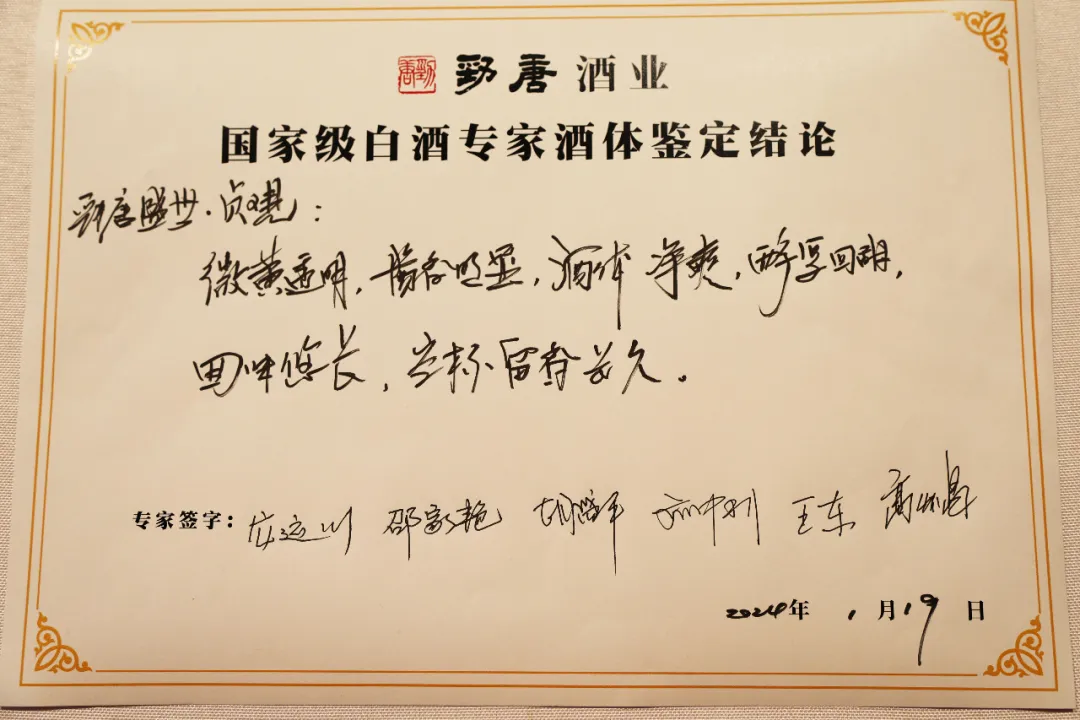 劲唐 劲唐 酒业
国家级白酒专家酒体鉴定结论
劲唐盛世·贞观：
微黄透明，酱香明显，酒体净爽，醇厚回甜，
回味悠长，空杯留香长久。
专家签字： 邵家艳 王东
2024年 1月19日